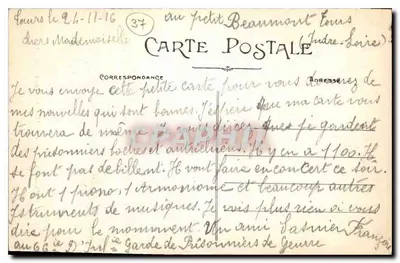 Tours le 24-11-16 (37) au petit Beaumont Tours
chers Mademoiselle (Indre-Loire)
CARTE POSTALE
CORRESPONDANCE ADRESSE
Je vous envoye cette petite carte pour vous donnez de
mes nouvelles qui sont bonnes. J'espère que ma carte vous
trouvera de même vous dires que je gardent
des prisonniers boche et autrichiens. Il y en a 1100. Ils
se font pas de billent. Il vont faire en concert ce soir.
Il ont 1 piono, 1 Armoniome et beaucoup autres
Istruments de musiques. Je vois plus rien a vous
dire pour le momment. Un ami Vasnier François
au 66ie D'Inf ie Garde de Prisonniers de Geurre